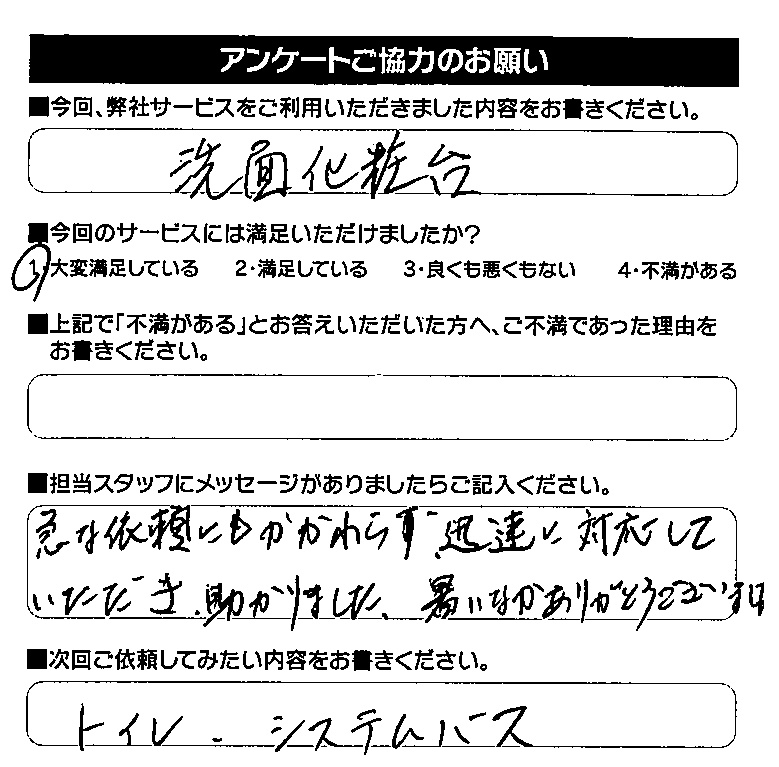 アンケートご協力のお願い
■今回、弊社サービスをご利用いただきました内容をお書きください。
洗面化粧台
■今回のサービスには満足いただけましたか？
1・大変満足している 2・満足している 3・良くも悪くもない 4・不満がある
■上記で「不満がある」とお答えいただいた方へ、ご不満であった理由を
お書きください。
■担当スタッフにメッセージがありましたらご記入ください。
急な依頼にもかかわらず、迅速に対応して
いただき、助かりました、暑いなかありがとうございました
■次回ご依頼してみたい内容をお書きください。
トイレ．システムバス